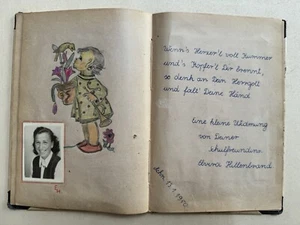 Wenn's Herzer'l voll Kummer
und's Kopfer'l Dir brennt,
so denk an Dein Herrgott
und falt' Deine Händ
Eine kleine Widmung
von Deiner
Schulfreundin
Elvira Hillenbrand